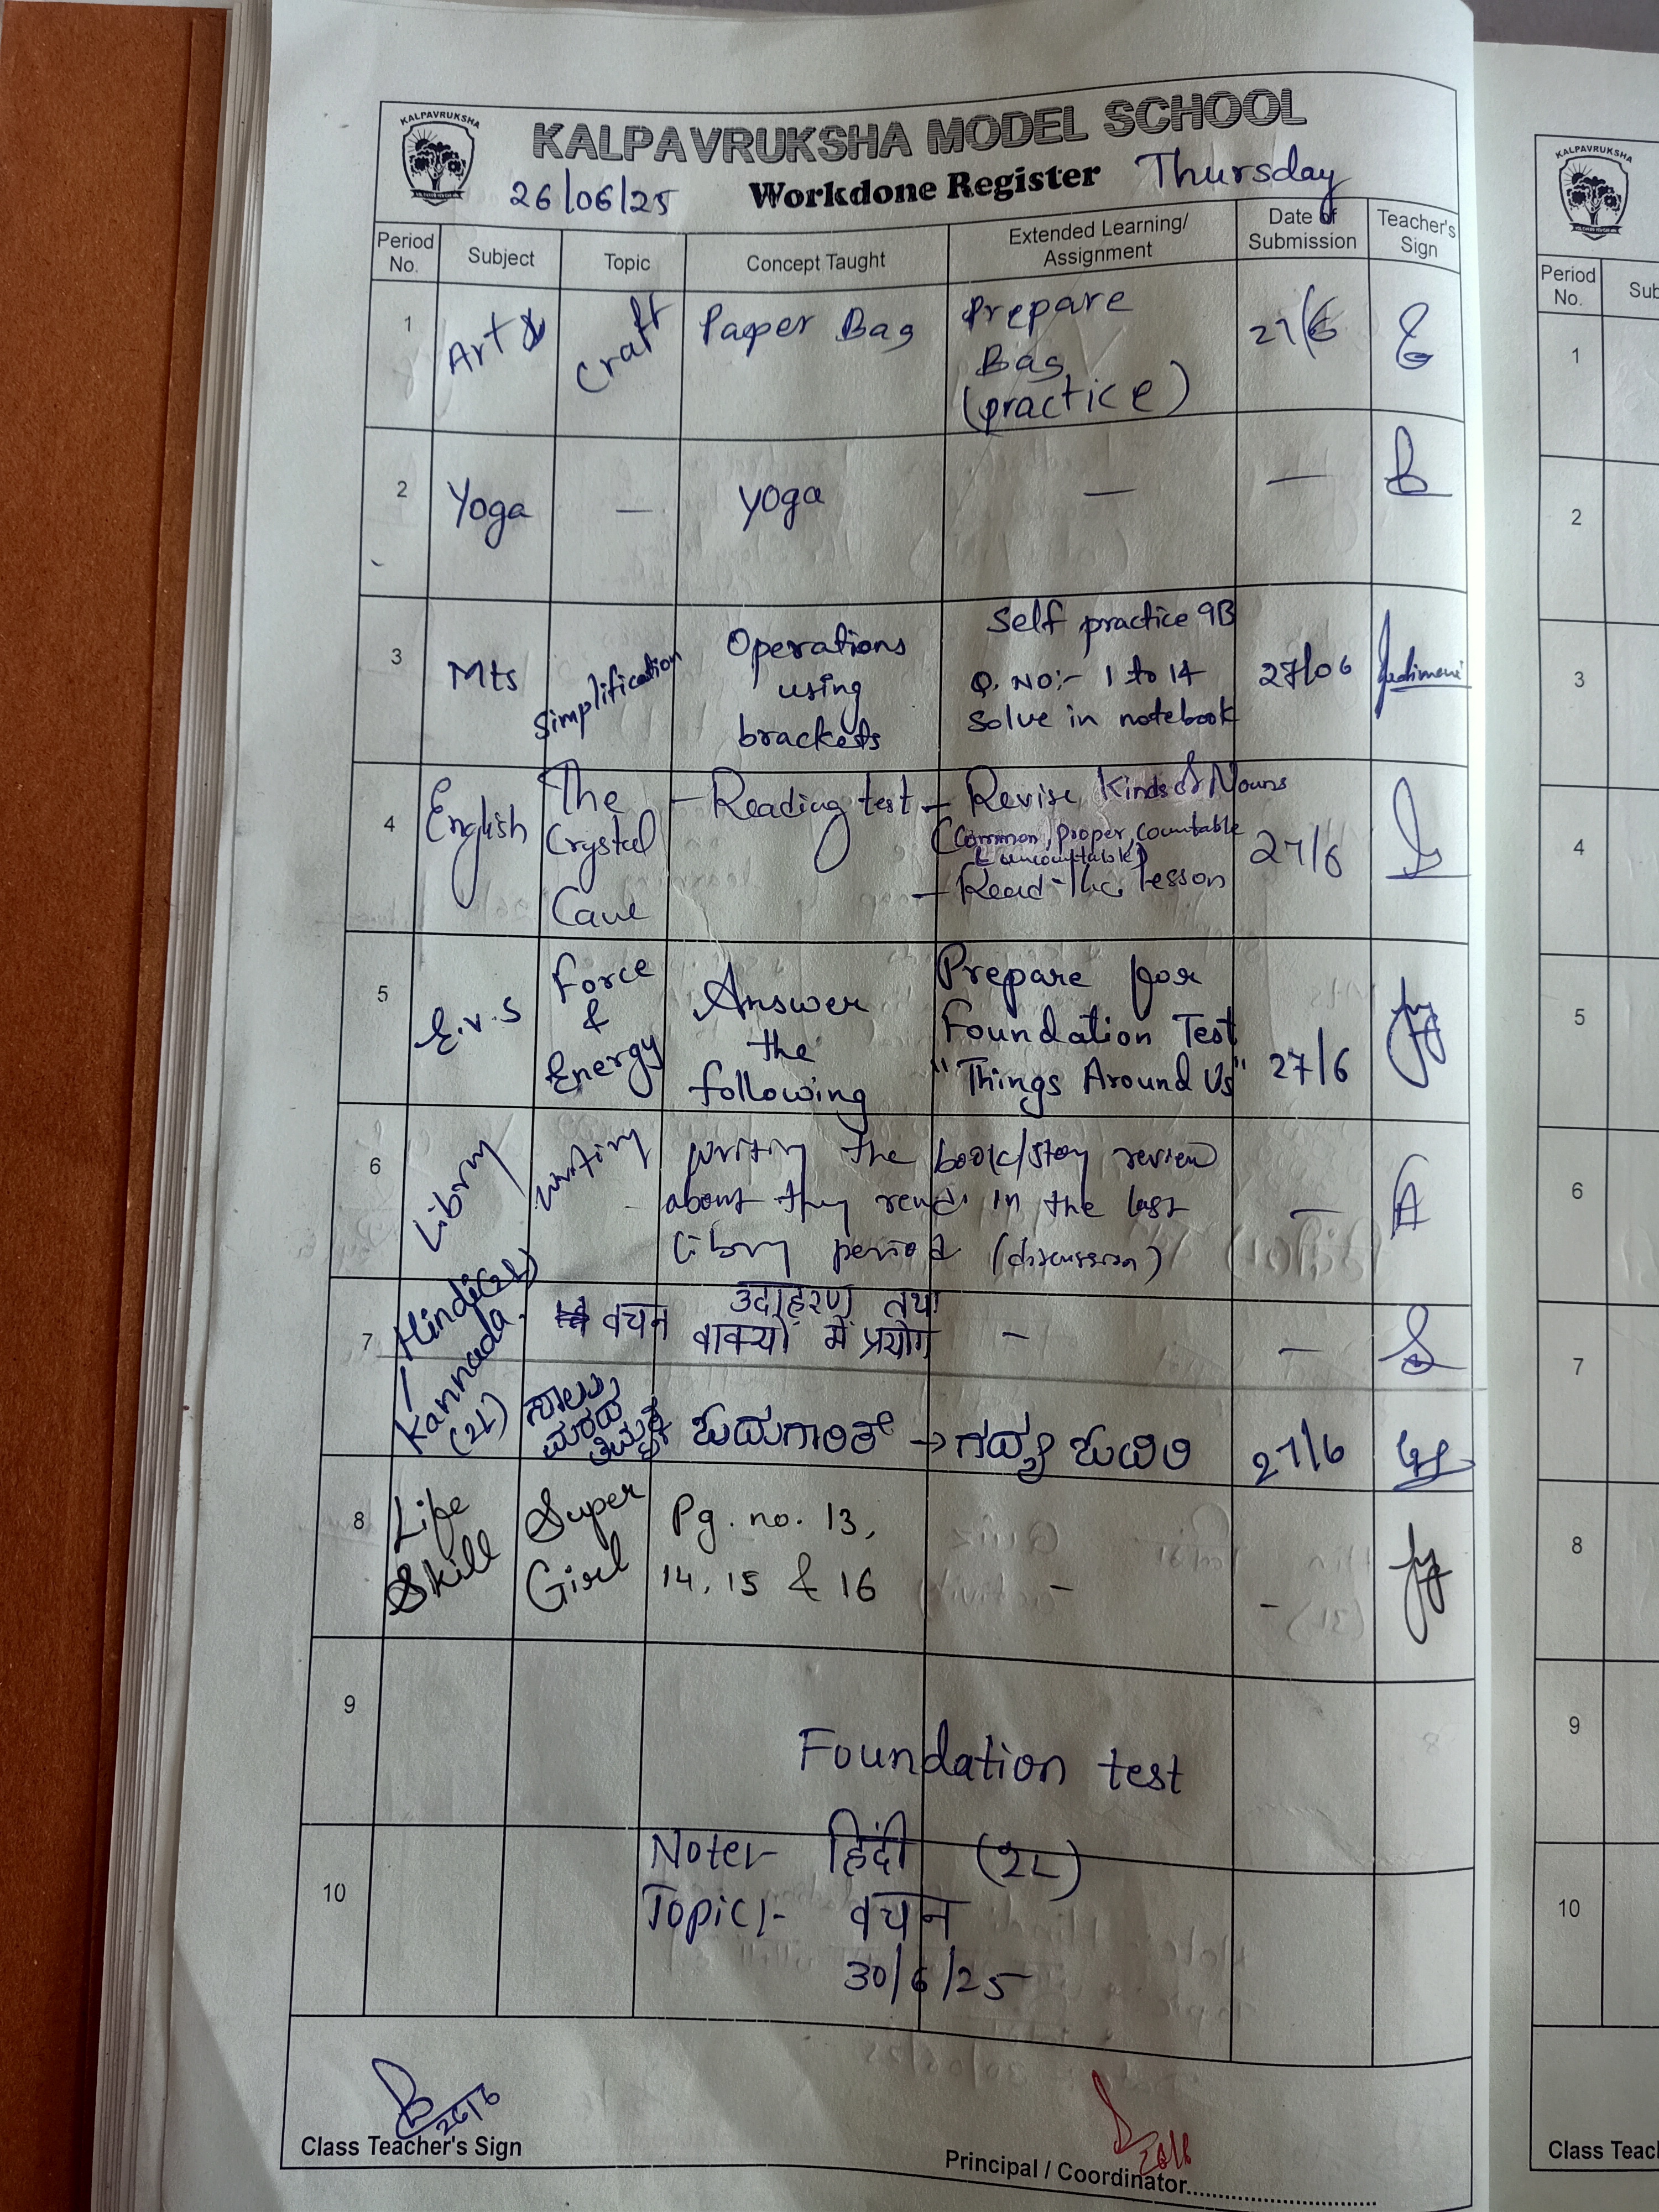 KALPAVRUKSHA
KALPAVRUKSHA MODEL SCHOOL
26/06/25 Workdone Register Thursday
Period No. Subject Topic Concept Taught Extended Learning/ Assignment Date of Submission Teacher's Sign
1 Art & Craft Paper Bag Prepare Bag (practice) 27/6
2 Yoga — Yoga — —
3 Mts Simplification Operations using brackets Self practice 9B Q. NO:- 1 to 14 Solve in notebook 27/06
4 English The Crystal Cave - Reading test - Revise Kinds of Nouns (Common, proper, countable & uncountable) - Read the lesson 27/6
5 E.V.S Force & Energy Answer the following Prepare for Foundation Test "Things Around Us" 27/6
6 Library writing writing the book/story review about they read in the last library period (discussion) —
7 Hindi(2L) वचन उदाहरण तथा वाक्यों में प्रयोग — —
Kannada (2L) ಸಾಲು ಮರದ ತಿಮ್ಮಕ್ಕ → ಗದ್ಯ 27/6
8 Life Skill Super Girl Pg. no. 13, 14, 15 & 16 - -
9 Foundation test
10 Note:- हिंदी (2L)
Topic:- वचन
30/6/25
26/6
Class Teacher's Sign
Principal / Coordinator
KALPAVRUKSHA
Period No.
1
2
3
4
5
6
7
8
9
10